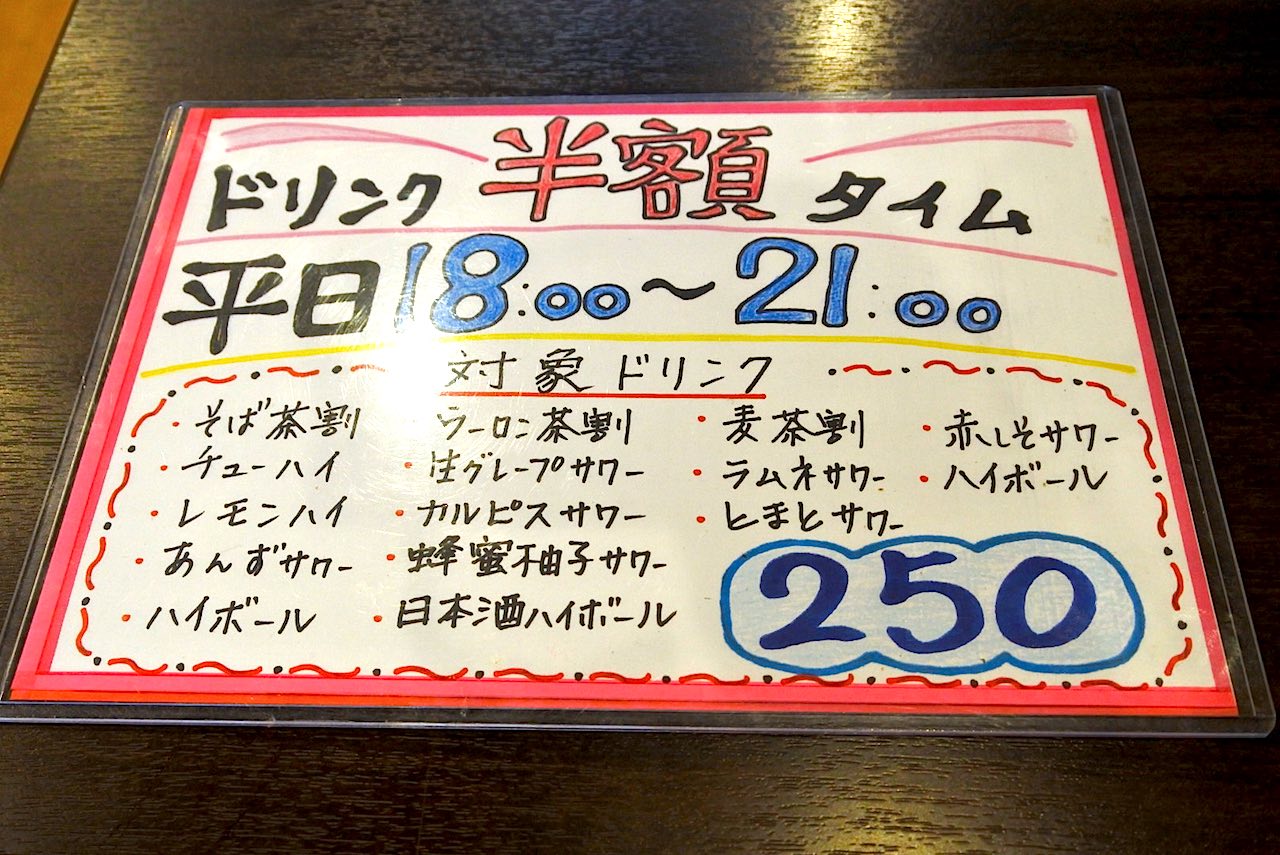 ドリンク 半額 タイム
平日 18:00〜21:00
対象ドリンク
・そば茶割 ウーロン茶割 ・麦茶割 ・赤しそサワー
・チューハイ ・生グレープサワー ・ラムネサワー ・ハイボール
・レモンハイ ・カルピスサワー ・とまとサワー
・あんずサワー ・蜂蜜柚子サワー
・ハイボール ・日本酒ハイボール
250